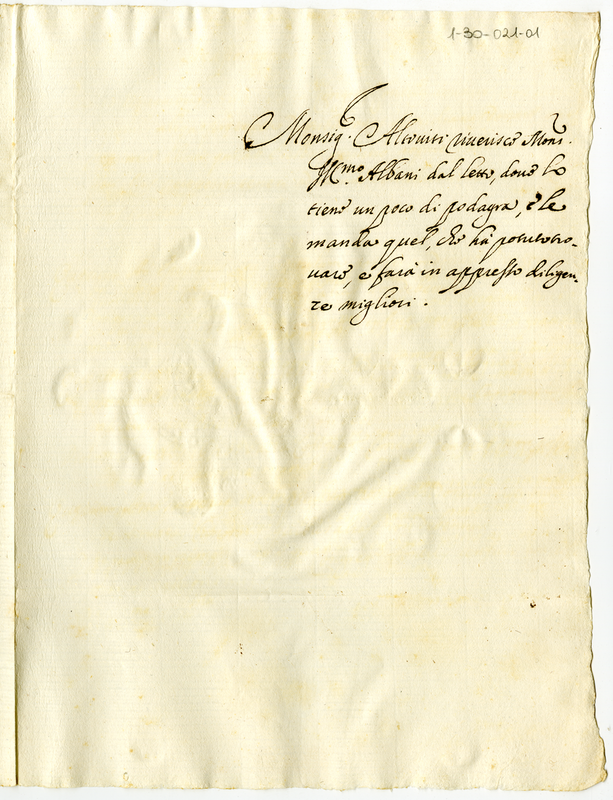 1-30-021-01
Monsig.r Altoviti riverisce Mons.r
Ill.mo Albani dal letto, dove lo
tiene un poco di podagra, e le
manda quel, che hà potuto tro-
vare, e farà in appresso diligen-
ze migliori.